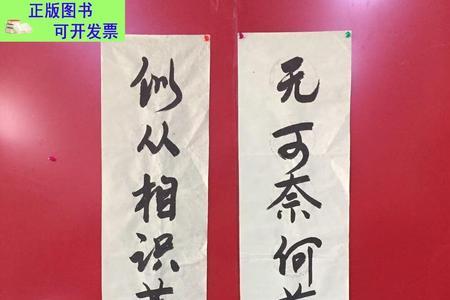 正版图书
可开发票
无可奈何
似从相识